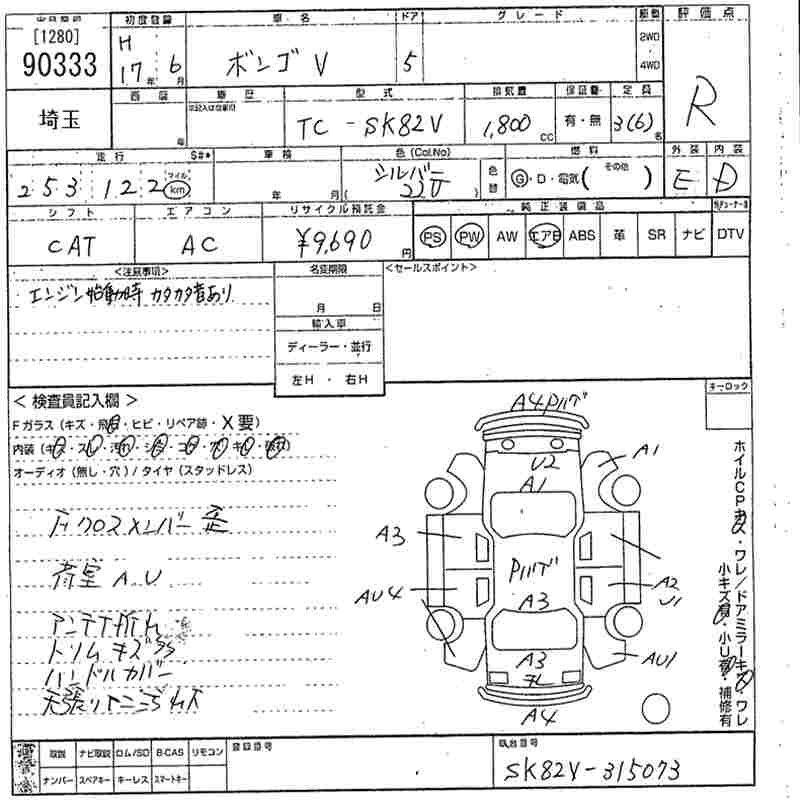 [1280]
90333
初度登録
H
17年 6月
車名
ボンゴ V
ドア
5
グレード
2WD
4WD
評価点
R
埼玉
車歴
型式
TC - SK82V
排気量
1,800 cc
保証書
有・無
定員
3(6)名
走行
253,122
マイル
km
車検
年 月
色 (Col.No)
シルバー
22V
色替
燃料
G・D・電気( その他 )
外装
E
内装
D
シフト
CAT
エアコン
AC
リサイクル預託金
¥9,690 円
純正装備品
PS PW AW エアB ABS 革 SR ナビ DTV
<注意事項>
エンジン始動時 カタカタ音あり
名変期限
月 日
輸入車
ディーラー・並行
左H・右H
<セールスポイント>
キーロック
< 検査員記入欄 >
Fガラス (キズ・飛石・ヒビ・リペア跡・X要)
オーディオ (無し・穴) / タイヤ (スタッドレス)
Fクロスメンバー歪
荷室 A.U
アンテナ折れ
トリムキズ
ハンドルカバー
天張り
A4
U2
A1
A1
A3
A3
AU4
A2
U1
A3
AU1
A4
取説 ナビ取説 ロム/SD B-CAS リモコン
ナンバー スペアキー キーレス スマートキー
登録番号
車台番号
SK82V-315073